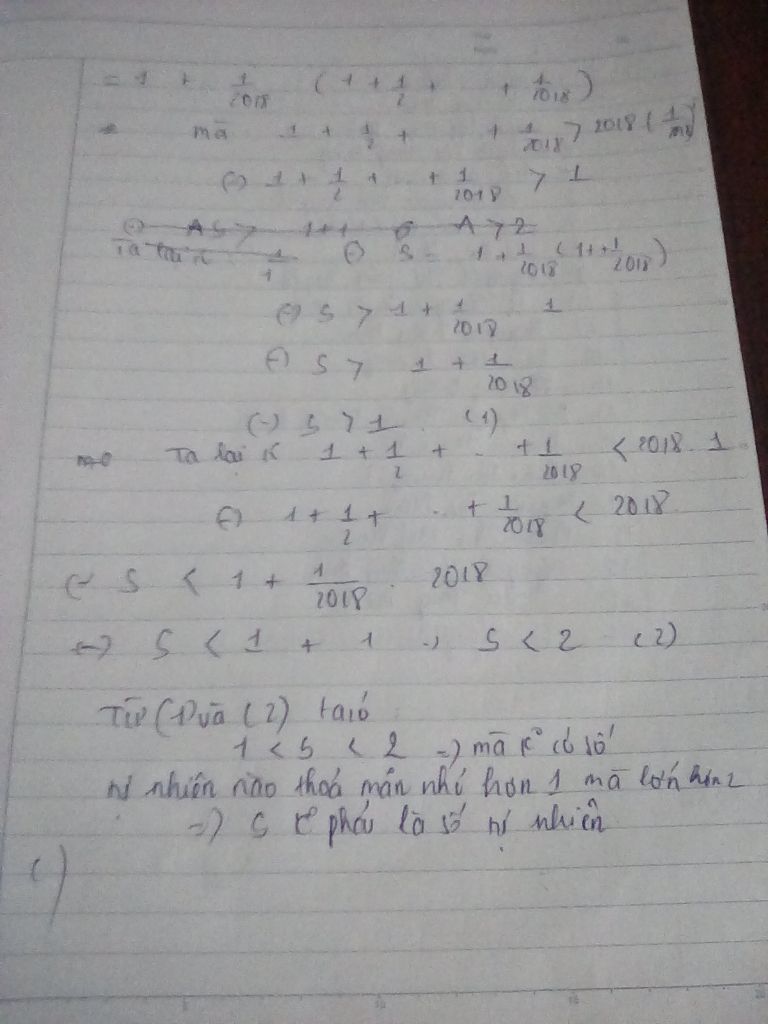 = 1 + 1/2018 (1 + 1/2 + + 1/2018)
mà 1 + 1/2 + + 1/2018 > 2018 (
(=) 1 + 1/2 + .. + 1/2018 > 1
(=) A S > 1+1 A > 2
Ta lại 1/1 (=) S = 1 + 1/2018 (1++1/2018)
(=) S > 1 + 1/2018 . 1
(=) S > 1 + 1/2018
(=) S > 1 (1)
Ta lại K 1 + 1/2 + .. + 1/2018 < 2018 . 1
(=) 1 + 1/2 + .. + 1/2018 < 2018
(=) S < 1 + 1/2018 . 2018
(=) S < 1 + 1 => S < 2 (2)
Từ (1) và (2) ta có
1 < S < 2 => mà K° có số
tự nhiên nào thoả mãn nhỏ hơn 1 mà lớn hơn 2
=) S K° phải là số tự nhiên
c)